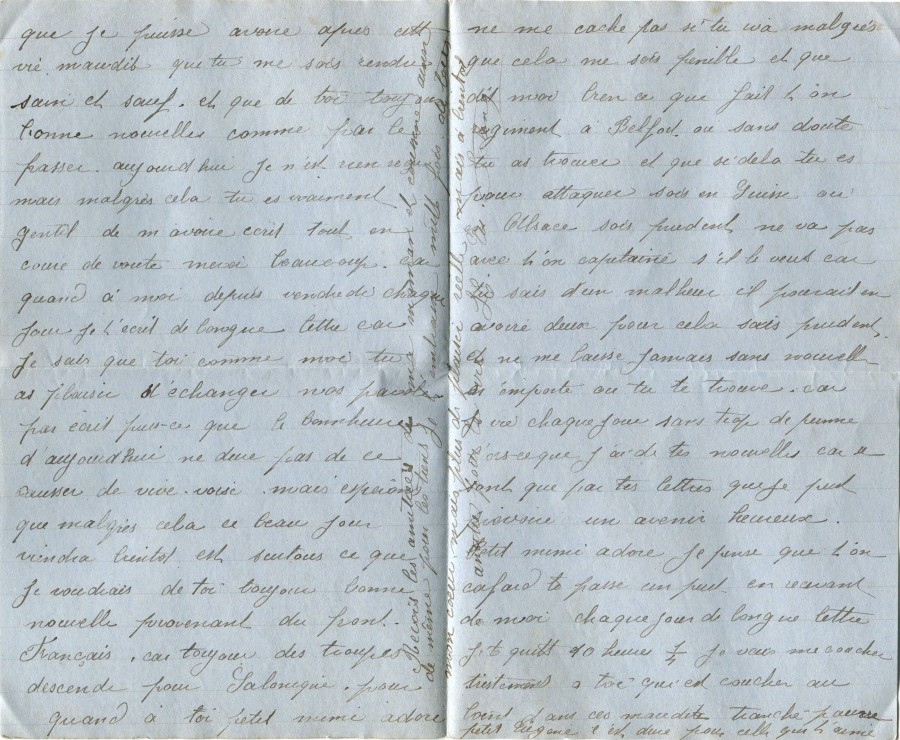 que je puisse avoire apres cett
vie maudit que tu me sois rendu
sain et sauf. et que de toi toujours
bonne nouvelles comme par le
passer. aujourd'hui je n'est rien recu
mais malgrés cela tu es vraiment
gentil de m'avoire ecrit tout en
cour de route merci beaucoup. car
quand á moi depuis vendredi chaque
jour je t'ecrit de longue lettre car
je sais que toi comme moi tu
as plaisir d'échanger nos pensé
par écrit puis-ce que le bonheur
d'aujourd'hui ne dure pas de ce
causser de vive-voix. mais espéron
que malgrés cela ce beau jour
viendra bientot est surtous ce que
je voudrais de toi toujour bonne
nouvelle provenant du front.
Français. car toujour des troupes
descende pour Salonique. pour
quand á toi petit mimi adore
ne me cache pas si tu va malgrés
que cela me sois penible et que
dit moi bien ce que fait t'on
regiment á Belfort. ou sans doute
tu as trouver et que si dela tu es
pour attaquer sois en Suisse ou
en Alsace sois prudent ne va pas
avec t'on capitaine s'il le veut car
tu sais d'un malheur il pourait en
avoire deux pour cela sois prudent,
et ne me laisse jamais sans nouvelle
n'emporte ou tu te trouve. car
je vie chaque jour sans trop de penne
lors-ce que j'ai de tes nouvelles car a
sont que par tes lettres que je peut
revoire un avenir heureux.
Petit mimi adore je pense que t'on
cafard te passe un peut en recevant
de moi chaque jour de longue lettre
je te quitt 10 heures ¼ je vais me coucher
tristement a toi qui est coucher au
loint dans ces maudite tranché pauvre
petit Eugène c'est dure pour celle qui t'aime
Recois les amitiées de ma maman et comme aussi
de même pour les tiens je t'embrasse mille fois de tout
mon coeur mais plus de plaisir reelle mais a bientot